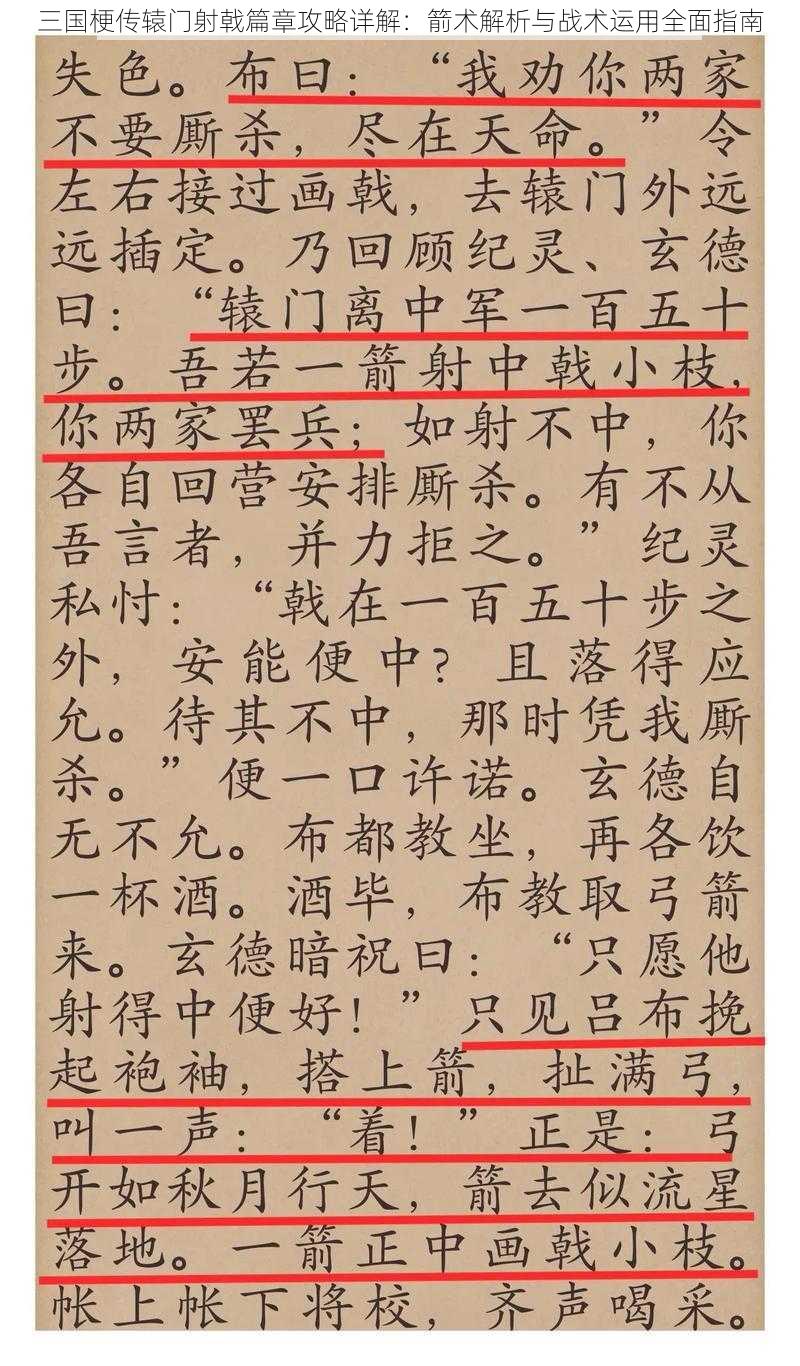 三国梗传辕门射戟篇章攻略详解：箭术解析与战术运用全面指南
失色。布曰：“我劝你两家
不要厮杀，尽在天命。”令
左右接过画戟，去辕门外远
远插定。乃回顾纪灵、玄德
曰：“辕门离中军一百五十
步。吾若一箭射中戟小枝，
你两家罢兵；如射不中，你
各自回营安排厮杀。有不从
吾言者，并力拒之。”纪灵
私忖：“戟在一百五十步之
外，安能便中？且落得应
允。待其不中，那时凭我厮
杀。”便一口许诺。玄德自
无不允。布都教坐，再各饮
一杯酒。酒毕，布教取弓箭
来。玄德暗祝曰：“只愿他
射得中便好！”只见吕布挽
起袍袖，搭上箭，扯满弓，
叫一声：“着！”正是：弓
开如秋月行天，箭去似流星
落地。一箭正中画戟小枝。
帐上帐下将校，齐声喝采。